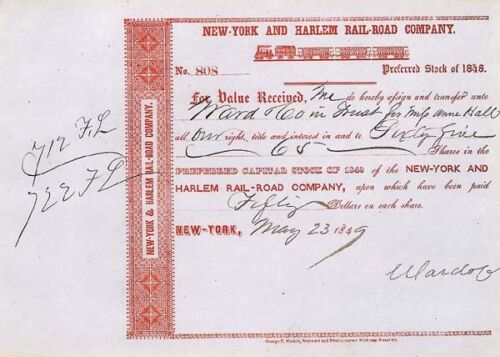 NEW-YORK AND HARLEM RAIL-ROAD COMPANY.
No. 808 Preferred Stock of 1848.
For Value Received, We do hereby assign and transfer unto
Ward & Co in Trust for Miss Anne Hall
all Our right, title and interest in and to Sixty Five
65 Shares in the
PREFERRED CAPITAL STOCK OF 1848 of the NEW-YORK AND
HARLEM RAIL-ROAD COMPANY, upon which have been paid
Fifty Dollars on each share.
NEW-YORK, May 23 1849
Ward & Co
712 FL
722 FL
NEW-YORK & HARLEM RAIL-ROAD COMPANY.